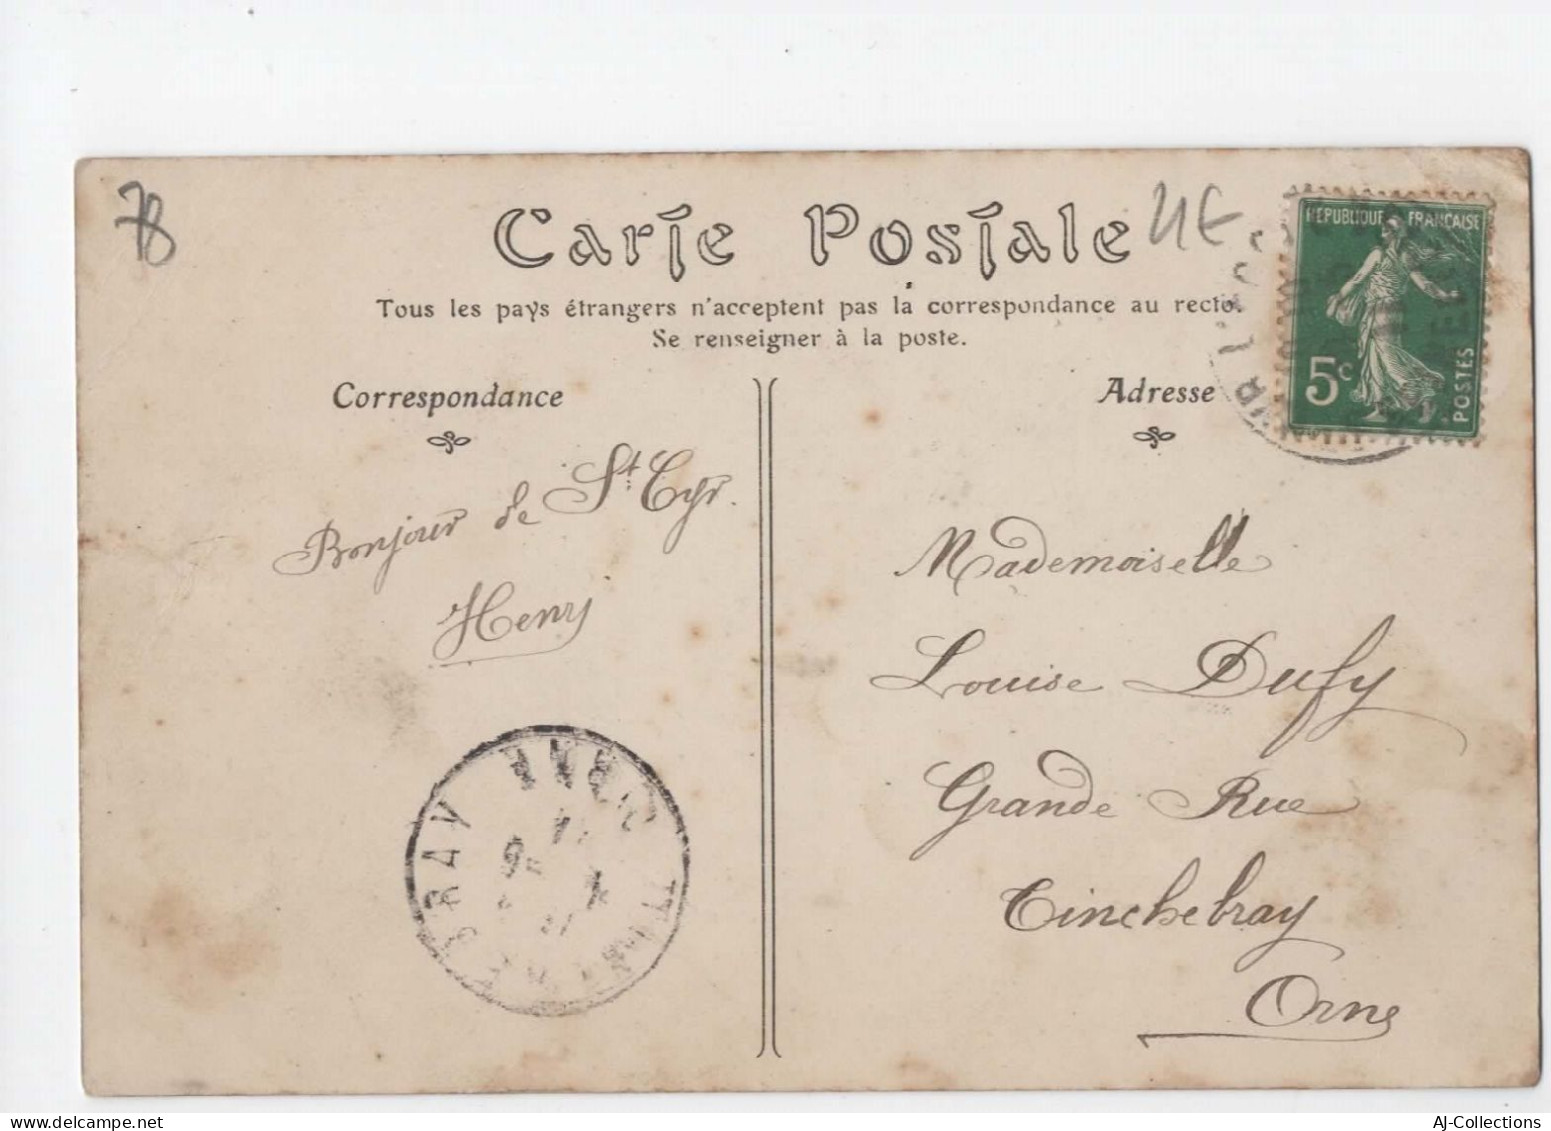 78
Carte Postale
4€
Tous les pays étrangers n'acceptent pas la correspondance au recto.
Se renseigner à la poste.
REPUBLIQUE FRANÇAISE
5c
POSTES
Correspondance
Adresse
Bonjour de St Cyr.
Henry
Mademoiselle
Louise Dufy
Grande Rue
Tinchebray
Orne
TINCHEBRAY
AJ-Collections